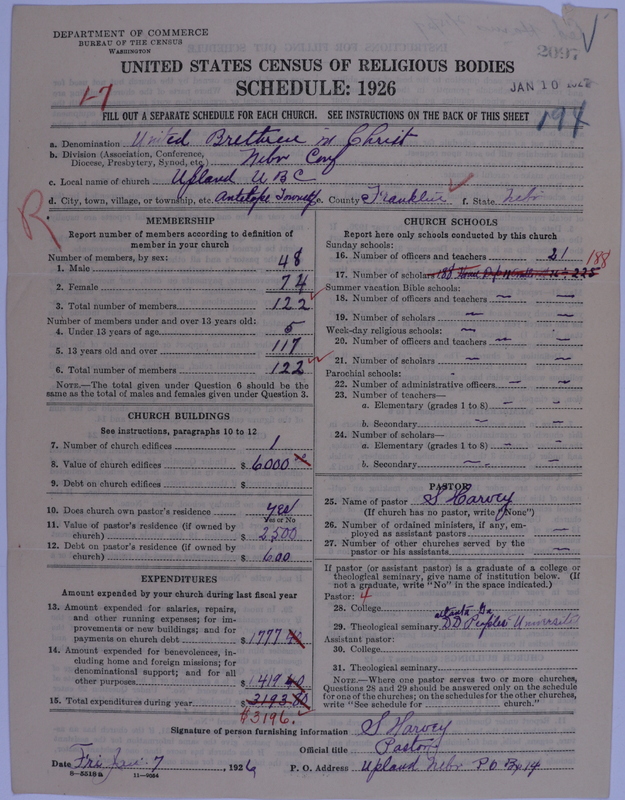 DEPARTMENT OF COMMERCE
BUREAU OF THE CENSUS
WASHINGTON
2097
UNITED STATES CENSUS OF RELIGIOUS BODIES
SCHEDULE: 1926
JAN 10 1928
1-7
FILL OUT A SEPARATE SCHEDULE FOR EACH CHURCH. SEE INSTRUCTIONS ON THE BACK OF THIS SHEET
194
a. Denomination United Brethren in Christ
b. Division (Association, Conference, Diocese, Presbytery, Synod, etc.) Nebr Conf
c. Local name of church Upland U B C
d. City, town, village, or township, etc. Antelope e. County Franklin f. State Nebr
R
MEMBERSHIP
Report number of members according to definition of member in your church
Number of members, by sex:
1. Male 48
2. Female 74
3. Total number of members 122
Number of members under and over 13 years old:
4. Under 13 years of age 5
5. 13 years old and over 117
6. Total number of members 122
NOTE.—The total given under Question 6 should be the same as the total of males and females given under Question 3.
CHURCH BUILDINGS
See instructions, paragraphs 10 to 12
7. Number of church edifices 1
8. Value of church edifices $ 6000
9. Debt on church edifices $
10. Does church own pastor's residence yes
Yes or No
11. Value of pastor's residence (if owned by church) $ 2500
12. Debt on pastor's residence (if owned by church) $ 600
EXPENDITURES
Amount expended by your church during last fiscal year
13. Amount expended for salaries, repairs, and other running expenses; for improvements or new buildings; and for payments on church debt $ 1777 40
14. Amount expended for benevolences, including home and foreign missions; for denominational support; and for all other purposes $ 1419 40
15. Total expenditures during year $ 3193 80
$3196.
CHURCH SCHOOLS
Report here only schools conducted by this church
Sunday schools:
16. Number of officers and teachers 21
17. Number of scholars 188
Summer vacation Bible schools:
18. Number of officers and teachers —
19. Number of scholars —
Week-day religious schools: —
20. Number of officers and teachers —
21. Number of scholars —
Parochial schools: -
22. Number of administrative officers — —
23. Number of teachers—
a. Elementary (grades 1 to 8) — —
b. Secondary — —
24. Number of scholars—
a. Elementary (grades 1 to 8) — —
b. Secondary — —
PASTOR
25. Name of pastor S Harvey
(If church has no pastor, write "None")
26. Number of ordained ministers, if any, employed as assistant pastors —
27. Number of other churches served by the pastor or his assistants —
If pastor (or assistant pastor) is a graduate of a college or theological seminary, give name of institution below. (If not a graduate, write "No" in the space indicated.)
Pastor: 4
28. College
Atlanta Ga
29. Theological seminary D D Peoples University
Assistant pastor:
30. College
31. Theological seminary
NOTE.—Where one pastor serves two or more churches, Questions 28 and 29 should be answered only on the schedule for one of the churches; on the schedules for the other churches, write "See schedule for ______ church."
Signature of person furnishing information S Harvey
Official title Pastor
Date Fri 7, 1926 P. O. Address Upland Nebr P O Bx 14
8—5518a 11—9084